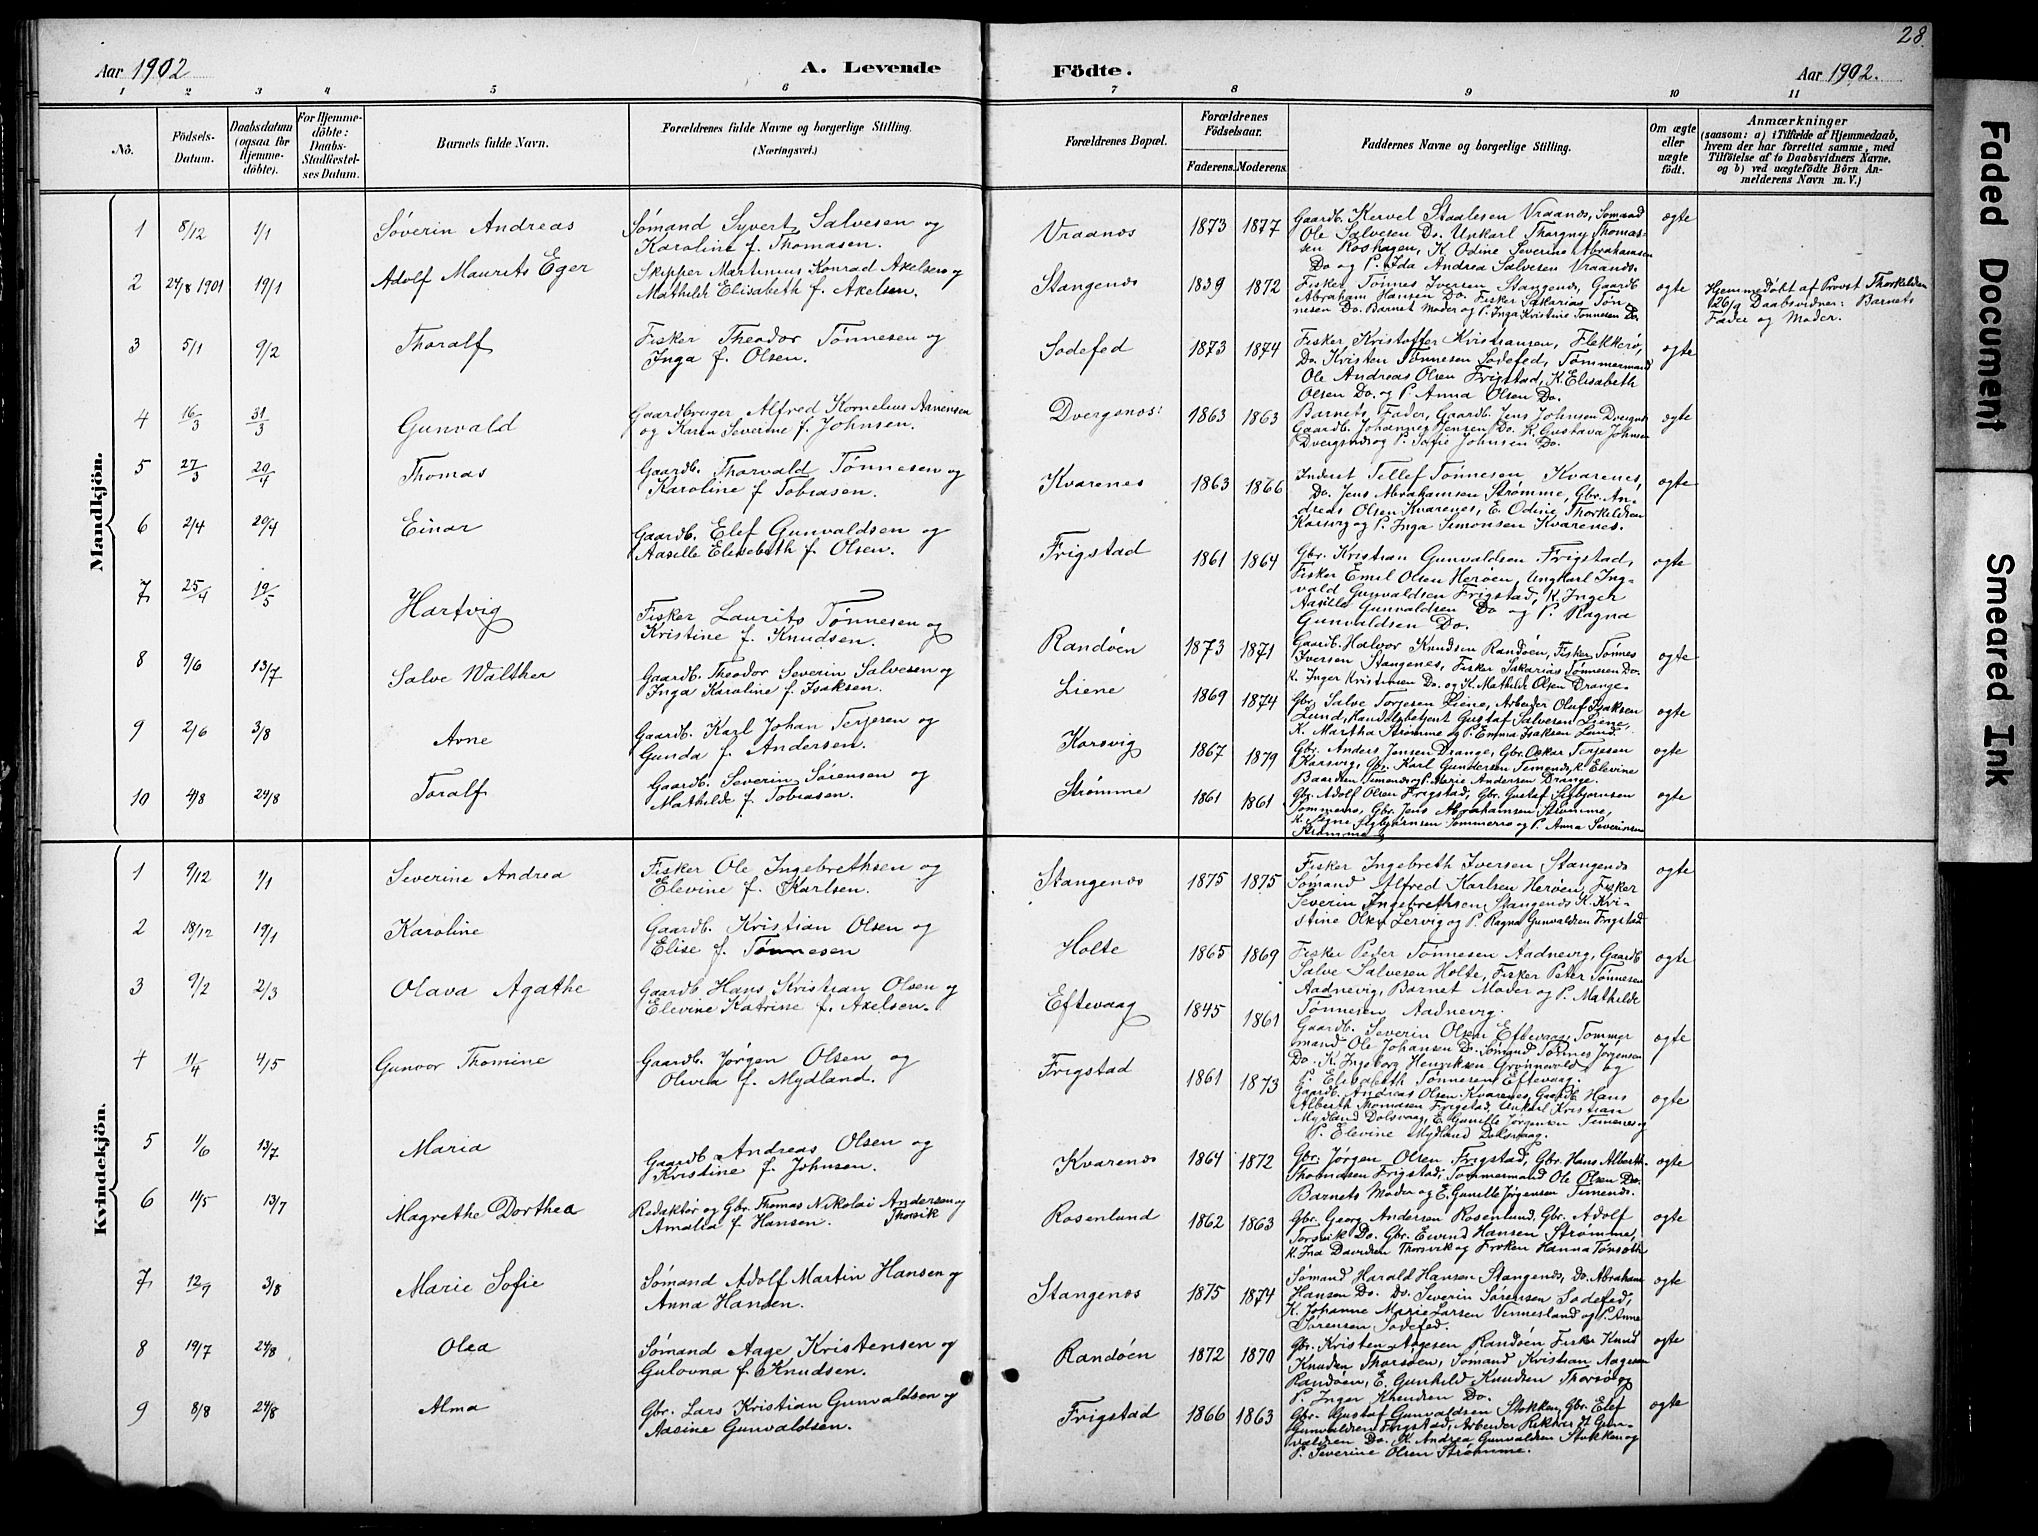 28.
Aar 1902 A. Levende Födte. Aar 1902.
1 2 3 4 5 6 7 8 9 10 11
No. Födsels-Datum. Daabsdatum (ogsaa for Hjemme-döbte). For Hjemme-döbte: Daabs-Stadfæstel-ses Datum. Barnets fulde Navn. Forældrenes fulde Navne og borgerlige Stilling. (Næringsvei.) Forældrenes Bopæl. Forældrenes Födselsaar. Faderens. Moderens. Faddernes Navne og borgerlige Stilling. Om ægte eller uægte födt. Anmærkninger (saasom: a) i Tilfælde af Hjemmedaab, hvem der har forrettet samme, med Tilföielse af to Daabsvidners Navne. og b) ved uægtefödte Börn An-melderens Navn m. V.)
Mandkjön.
1 8/12 1/1 Søverin Andreas Sømand Syvert Salvesen og Karoline f. Thomasen. Vraanes 1873 1877 Gaardb. Kervel Staalesen Vraanes, Sømand
Ole Salvesen Do. Unkarl Thorgny Thomas-
sen Roshagen, K. Odine Severine Abrahamsen
Do og P. Ida Andrea Salvesen Vraanes. ægte
2 24/8 1901 19/1 Adolf Maurits Eger Skipper Martinius Konrad Akelsen og Mathilde Elisabeth f. Akelsen. Stangenes 1839 1872 Fisker Tønnes Iversen Stangenes, Gaardb
Abraham Hansen Do. Fisker Sakarias Tøn-
nesen Do. Barnet Moder og P. Inga Kristine Tønnesen Do. ægte Hjemmedøbt af Provst Thorkildsen
26/9 Daabsvidner: Barnets
Fader og Moder.
3 5/1 9/2 Thoralf Fisker Theodor Tønnesen og Inga f. Olsen. Sodefed 1873 1874 Fisker Kristoffer Kristiansen, Flekkerø,
Do. Kristen Tønnesen Sodefed, Tømmermand
Ole Andreas Olsen Frigstad, K. Elisabeth
Olsen Do. og P. Anna Olsen Do. ægte
4 16/3 31/3 Gunvald Gaardbruger Alfred Kornelius Arnensen og Karen Severine f. Johnsen. Dvergenes: 1863 1863 Barnets Fader, Gaardb. Jens Johnsen Dvergnes
Gaardb. Johannes Jensen Do. K. Gustava Johnsen
Dvergsnes og P. Sofie Johnsen Do. ægte
5 27/3 20/4 Thomas Gaardb. Thorvald Tønnesen og Karoline f. Tobiasen. Kvarenes 1863 1866 Inderst Tellef Tønnesen Kvarenes,
Do. Jens Abrahamsen Strømme, Gbr. An-
dreas Olsen Kvarenes, E. Odine Thorkildsen
Korsvig og P. Inga Simonsen Kvarenes. ægte
6 2/4 20/4 Einar Gaardb. Elef Gunvaldsen og Aasille Elisebeth f. Olsen. Frigstad 1861 1864 Gbr. Kristian Gunvaldsen Frigstad,
Fisker Emil Olsen Herøen, Ungkarl Ing-
vald Gunvaldsen Frigstad, K. Inger
Aasille Gunvaldsen Do og P. Ragna
Gunvaldsen Do. ægte
7 25/4 19/5 Hartvig Fisker Laurits Tønnesen og Kristine f. Knudsen. Randøen 1873 1871 Gaardb. Halvor Knudsen Randøen, Fisker Tønnes
Iversen Stangenes, Fisker Sakarias Tønnesen Do.
K. Inger Kristensen Do. og K. Mathilde Olsen Drange. ægte
8 9/6 13/7 Salve Walther Gaardb. Theodor Severin Salvesen og Inga Karoline f. Isaksen. Liene 1869 1874 Gbr. Salve Torjesen Liene, Arbeider Oluf Isaksen
Lund, Handelsbetjent Gustaf Salvesen Liene,
K. Martha Strømme og P. Emma Isaksen Lund. ægte
9 2/6 3/8 Arne Gaardb. Karl Johan Terjesen og Gunda f. Andersen. Korsvig 1867 1879 Gbr. Anders Jensen Drange, Gbr. Oskar Terjesen
Karsvig, Gbr. Karl Gundersen Timenes, K. Elevine
Baardsen Timenes og P. Marie Andersen Drange. ægte
10 4/8 24/8 Toralf Gaardb. Severin Sørensen og Mathilde f. Tobiasen. Strømme 1861 1861 Gbr. Adolf Olsen Frigstad, Gbr. Gustaf Sigbjørnsen
Sommerro, Gbr. Jens Abrahamsen Strømme,
K. Signe Sigbjørnsen Sommerro og P. Anna Severinsen
Strømme ægte
Kvindekjön.
1 9/12 1/1 Severine Andrea Fisker Ole Ingebrethsen og Elevine f. Karlsen. Stangenes 1875 1875 Fisker Ingebreth Iversen Stangenes
Sømand Alfred Karlsen Herøen, Fisker
Severin Ingebrethsen Stangenes K. Kri-
stine Olsen Lervig og P. Ragna Gunvaldsen Frigstad ægte
2 18/12 19/1 Karoline Gaardb. Kristian Olsen og Elise f. Tønnesen Holte 1865 1869 Fisker Peder Tønnesen Aadnevig, Gaardb
Salve Salvesen Holte, Fisker Peter Tønnesen
Aadnevig, Barnet Moder og P. Mathilde
Tønnesen Aadnevig. ægte
3 9/2 2/3 Olava Agathe Gaardb Hans Kristian Olsen og Elevine Katrine f. Axelsen. Eftevaag 1845 1861 Gaardb. Severin Olsen Eftevaag, Tømmer
mand Ole Johansen Do. Sømand Tønnes Jørgensen
Do. K. Ingeborg Henriksen Grønnevold, og
P. Elisabeth Tønnesen Eftevaag. ægte
4 11/4 4/5 Gunvor Thomine Gaardb. Jørgen Olsen og Olivia f. Mydland. Frigstad 1861 1873 Gaardb. Andreas Olsen Kvarenes, Gaardb Hans
Alberth Thomasen Frigstad, Unkarl Kristian
Mydland Dolsvaag, E. Gunille Jørgensen Timenes og
P. Elevine Mydland Dolsvaag. ægte
5 1/6 13/7 Maria Gaardb. Andreas Olsen og Kristine f. Johnsen. Kvarenes 1864 1872 Gbr. Jørgen Olsen Frigstad, Gbr. Hans Alberth
Thomasen Frigstad, Tømmermand Ole Olsen Do.
Barnets Moder og E. Gunille Jørgensen Timenes. ægte
6 11/5 13/7 Magrethe Dorthea Redaktør og Gbr. Thomas Nikolai Andersen og Thorsvik Amalia f. Hansen. Rosenlund 1862 1863 Gbr. Georg Andersen Rosenlund, Gbr. Adolf
Torsvik Do. Gbr. Eivind Hansen Strømme,
K. Ina Davidsen Thorsvik og Frøken Hanna Tønseth ægte
7 12/7 3/8 Marie Sofie Sømand Adolf Martin Hansen og Anna Hansen. Stangenes 1875 1874 Sømand Harald Hansen Stangenes, Do. Abraham
Hansen Do. Do. Severin Sørensen Sodefed,
K. Johanne Marie Larsen Vennesland og P. Anne
Sørensen Sodefed. ægte
8 19/7 24/8 Olea Sømand Aage Kristensen og Gulovna f. Knudsen. Randøen 1872 1870 Gbr. Kristen Aagesen Randøen Fisker Knud
Knudsen Thorsøen, Sømand Kristian Aagesen
Randøen, E. Gunhild Knudsen Thorsø og
P. Inger Knudsen Do. ægte
9 8/8 24/8 Alma Gbr. Lars Kristian Gunvaldsen og Aasine Gunvaldsen. Frigstad 1866 1863 Gbr. Gustaf Gunvaldsen Stokken, Gbr. Elef
Gunvaldsen Frigstad, Arbeider Rikhart Gun-
valdsen Do. K. Andrea Gunvaldsen Stokken og
P. Severine Olsen Strømme. ægte
Faded Document
Smeared Ink